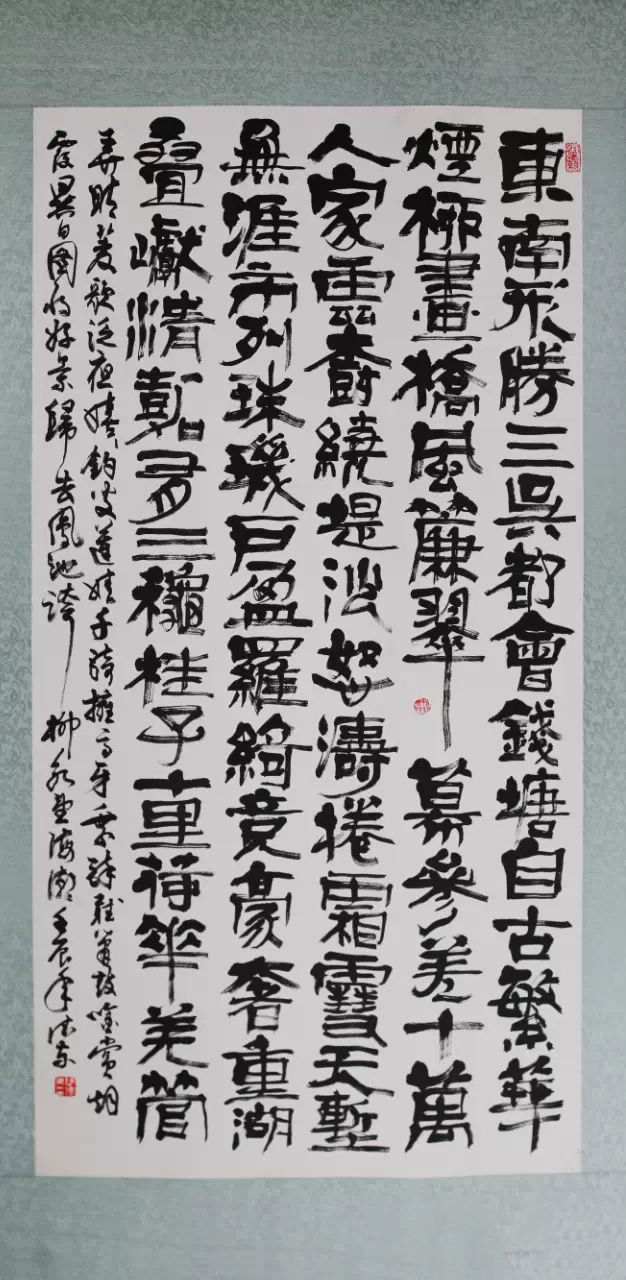 東南形勝三吳都會錢塘自古繁華
煙柳畫橋風簾翠幕參差十萬
人家雲樹繞堤沙怒濤捲霜雪天塹
無涯市列珠璣戶盈羅綺競豪奢重湖
疊巘清嘉有三龝桂子十里荷華羌管
弄晴菱歌泛夜嬉嬉釣叟蓮娃千騎擁高牙乘醉聽簫鼓吟賞烟
霞異日圖將好景歸去鳳池誇 柳永望海潮壬辰年